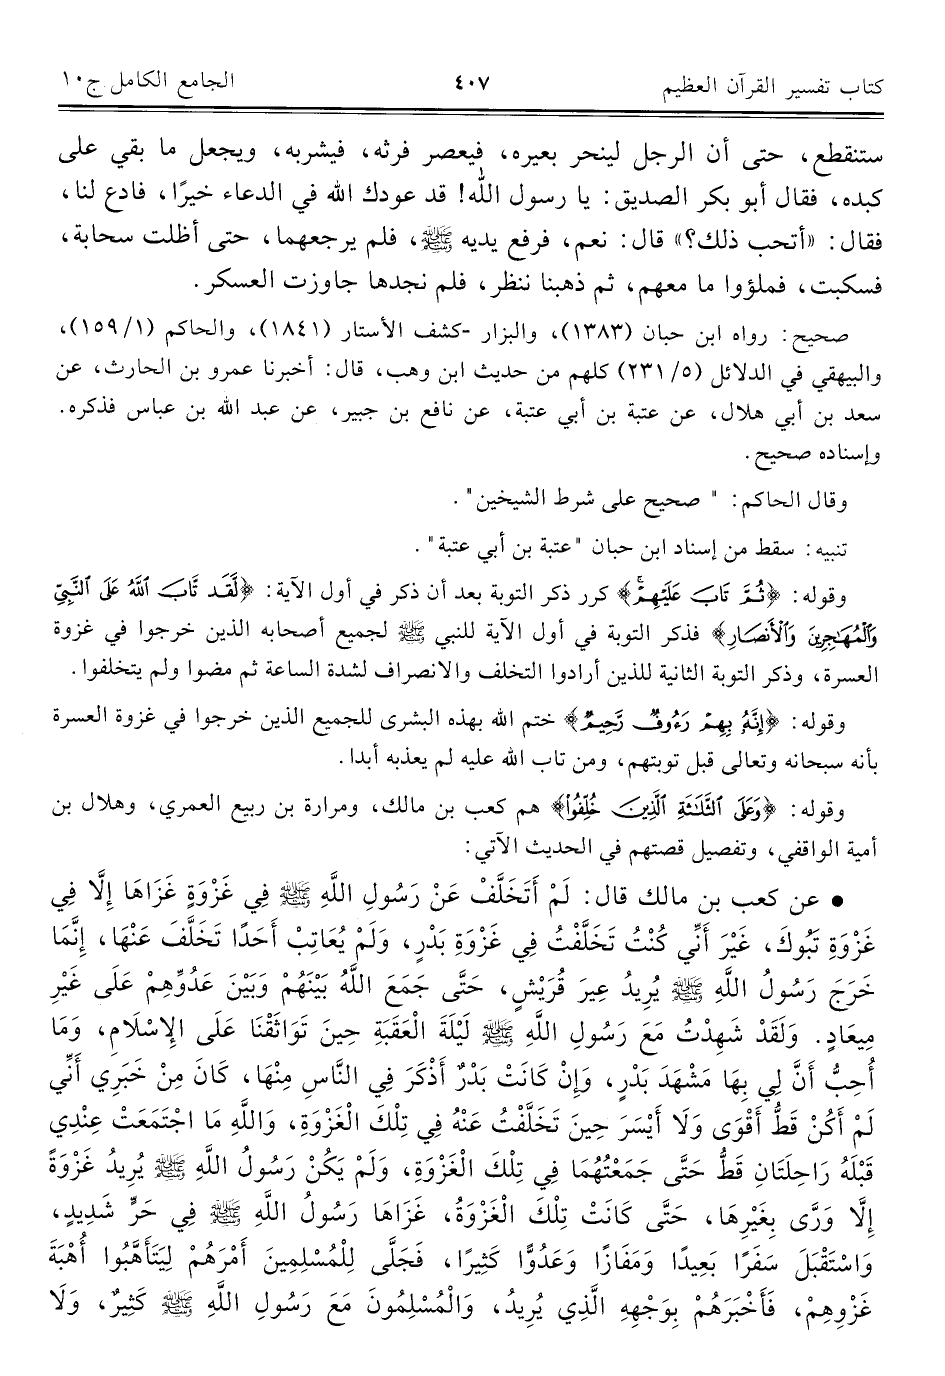 كتاب تفسير القرآن العظيم ٤٠٧ الجامع الكامل ج١٠
ستنقطع، حتى أن الرجل لينحر بعيره، فيعصر فرثه، فيشربه، ويجعل ما بقي على
كبده، فقال أبو بكر الصديق: يا رسول الله! قد عودك الله في الدعاء خيرًا، فادع لنا،
فقال: «أتحب ذلك؟» قال: نعم، فرفع يديه ﷺ، فلم يرجعهما، حتى أظلت سحابة،
فسكبت، فملؤوا ما معهم، ثم ذهبنا ننظر، فلم نجدها جاوزت العسكر.
صحيح: رواه ابن حبان (١٣٨٣)، والبزار -كشف الأستار (١٨٤١)، والحاكم (١/ ١٥٩)،
والبيهقي في الدلائل (٥/ ٢٣١) كلهم من حديث ابن وهب، قال: أخبرنا عمرو بن الحارث، عن
سعد بن أبي هلال، عن عتبة بن أبي عتبة، عن نافع بن جبير، عن عبد الله بن عباس فذكره.
وإسناده صحيح.
وقال الحاكم: "صحيح على شرط الشيخين".
تنبيه: سقط من إسناد ابن حبان "عتبة بن أبي عتبة".
وقوله: ﴿ثُمَّ تَابَ عَلَيْهِمْ﴾ كرر ذكر التوبة بعد أن ذكر في أول الآية: ﴿لَّقَد تَّابَ ٱللَّهُ عَلَى ٱلنَّبِيِّ
وَٱلْمُهَٰجِرِينَ وَٱلْأَنصَارِ﴾ فذكر التوبة في أول الآية للنبي ﷺ لجميع أصحابه الذين خرجوا في غزوة
العسرة، وذكر التوبة الثانية للذين أرادوا التخلف والانصراف لشدة الساعة ثم مضوا ولم يتخلفوا.
وقوله: ﴿إِنَّهُۥ بِهِمْ رَءُوفٌ رَّحِيمٌ﴾ ختم الله بهذه البشرى للجميع الذين خرجوا في غزوة العسرة
بأنه سبحانه وتعالى قبل توبتهم، ومن تاب الله عليه لم يعذبه أبدا.
وقوله: ﴿وَعَلَى ٱلثَّلَٰثَةِ ٱلَّذِينَ خُلِّفُوا۟﴾ هم كعب بن مالك، ومرارة بن ربيع العمري، وهلال بن
أمية الواقفي، وتفصيل قصتهم في الحديث الآتي:
• عن كعب بن مالك قال: لَمْ أَتَخَلَّفْ عَنْ رَسُولِ اللَّهِ ﷺ فِي غَزْوَةٍ غَزَاهَا إِلَّا فِي
غَزْوَةِ تَبُوكَ، غَيْرَ أَنِّي كُنْتُ تَخَلَّفْتُ فِي غَزْوَةِ بَدْرٍ، وَلَمْ يُعَاتِبْ أَحَدًا تَخَلَّفَ عَنْهَا، إِنَّمَا
خَرَجَ رَسُولُ اللَّهِ ﷺ يُرِيدُ عِيرَ قُرَيْشٍ، حَتَّى جَمَعَ اللَّهُ بَيْنَهُمْ وَبَيْنَ عَدُوِّهِمْ عَلَى غَيْرِ
مِيعَادٍ. وَلَقَدْ شَهِدْتُ مَعَ رَسُولِ اللَّهِ ﷺ لَيْلَةَ الْعَقَبَةِ حِينَ تَوَاثَقْنَا عَلَى الإِسْلَامِ، وَمَا
أُحِبُّ أَنَّ لِي بِهَا مَشْهَدَ بَدْرٍ، وَإِنْ كَانَتْ بَدْرٌ أَذْكَرَ فِي النَّاسِ مِنْهَا، كَانَ مِنْ خَبَرِي أَنِّي
لَمْ أَكُنْ قَطُّ أَقْوَى وَلَا أَيْسَرَ حِينَ تَخَلَّفْتُ عَنْهُ فِي تِلْكَ الْغَزْوَةِ، وَاللَّهِ مَا اجْتَمَعَتْ عِنْدِي
قَبْلَهُ رَاحِلَتَانِ قَطُّ حَتَّى جَمَعْتُهُمَا فِي تِلْكَ الْغَزْوَةِ، وَلَمْ يَكُنْ رَسُولُ اللَّهِ ﷺ يُرِيدُ غَزْوَةً
إِلَّا وَرَّى بِغَيْرِهَا، حَتَّى كَانَتْ تِلْكَ الْغَزْوَةُ، غَزَاهَا رَسُولُ اللَّهِ ﷺ فِي حَرٍّ شَدِيدٍ،
وَاسْتَقْبَلَ سَفَرًا بَعِيدًا وَمَفَازًا وَعَدُوًّا كَثِيرًا، فَجَلَّى لِلْمُسْلِمِينَ أَمْرَهُمْ لِيَتَأَهَّبُوا أُهْبَةَ
غَزْوِهِمْ، فَأَخْبَرَهُمْ بِوَجْهِهِ الَّذِي يُرِيدُ، وَالْمُسْلِمُونَ مَعَ رَسُولِ اللَّهِ ﷺ كَثِيرٌ، وَلَا